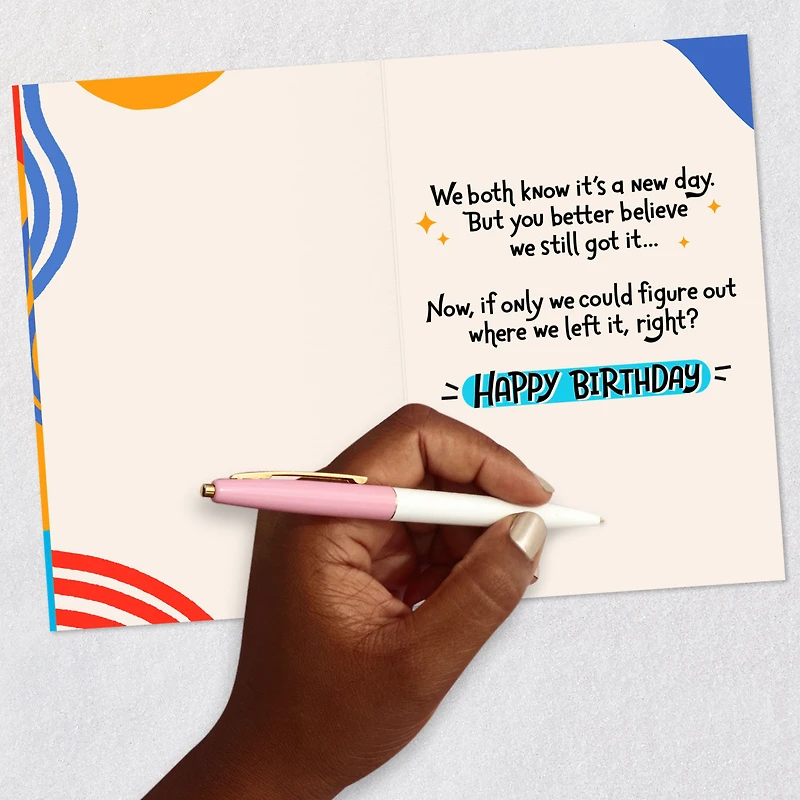 We both know it's a new day.
But you better believe
we still got it...
Now, if only we could figure out
where we left it, right?
HAPPY BIRTHDAY